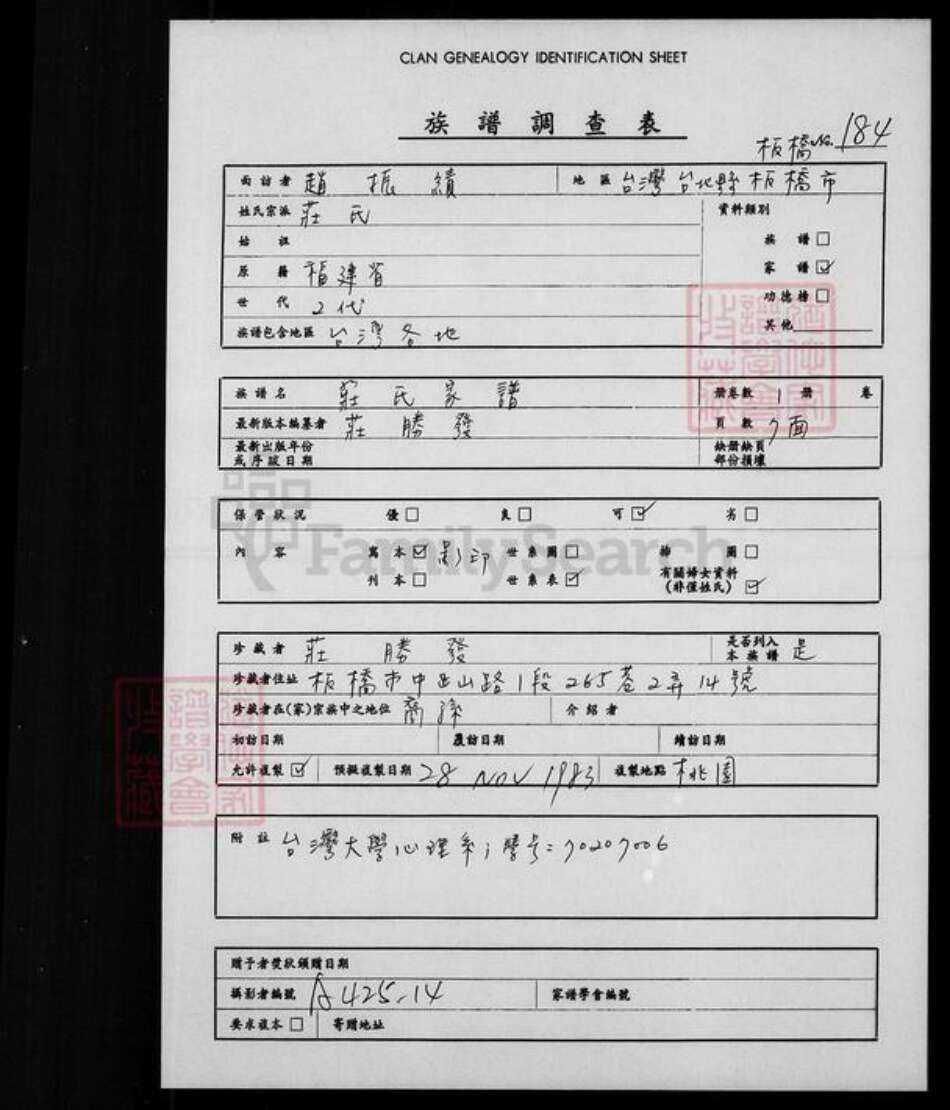 CLAN GENEALOGY IDENTIFICATION SHEET
族譜調查表
板橋No. 184
面訪者 趙振績 地區 台灣台北縣板橋市
姓氏宗派 莊氏 資料類別
始祖 族譜☐
原籍 福建省 家譜☑
世代 2代 功德榜☐
族譜包含地區 台灣各地 其他
族譜名 莊氏家譜 冊卷數 1冊 卷
最新版本編纂者 莊勝發 頁數 7面
最新出版年份 缺冊缺頁
或序跋日期 部份損壞
保管狀況 優☐ 良☐ 可☑ 劣☐
內容 寫本☑ 影印 世系圖☐ 插圖☐
刊本☐ 世系表☑ 有關婦女資料
(非僅姓氏)☑
FamilySearch
珍藏者 莊勝發 是否列入
本族譜 是
珍藏者住址 板橋市中山路1段265巷2弄14號
珍藏者在(家)宗族中之地位 裔孫 介紹者
初訪日期 覆訪日期 續訪日期
允許複製☑ 預擬複製日期 28 NOV 1983 複製地點 桃園
附註 台灣大學心理系；學号：70207006
贈予者獎狀頒贈日期
攝影者編號 A425-14 家譜學會編號
要求複本☐ 寄贈地址